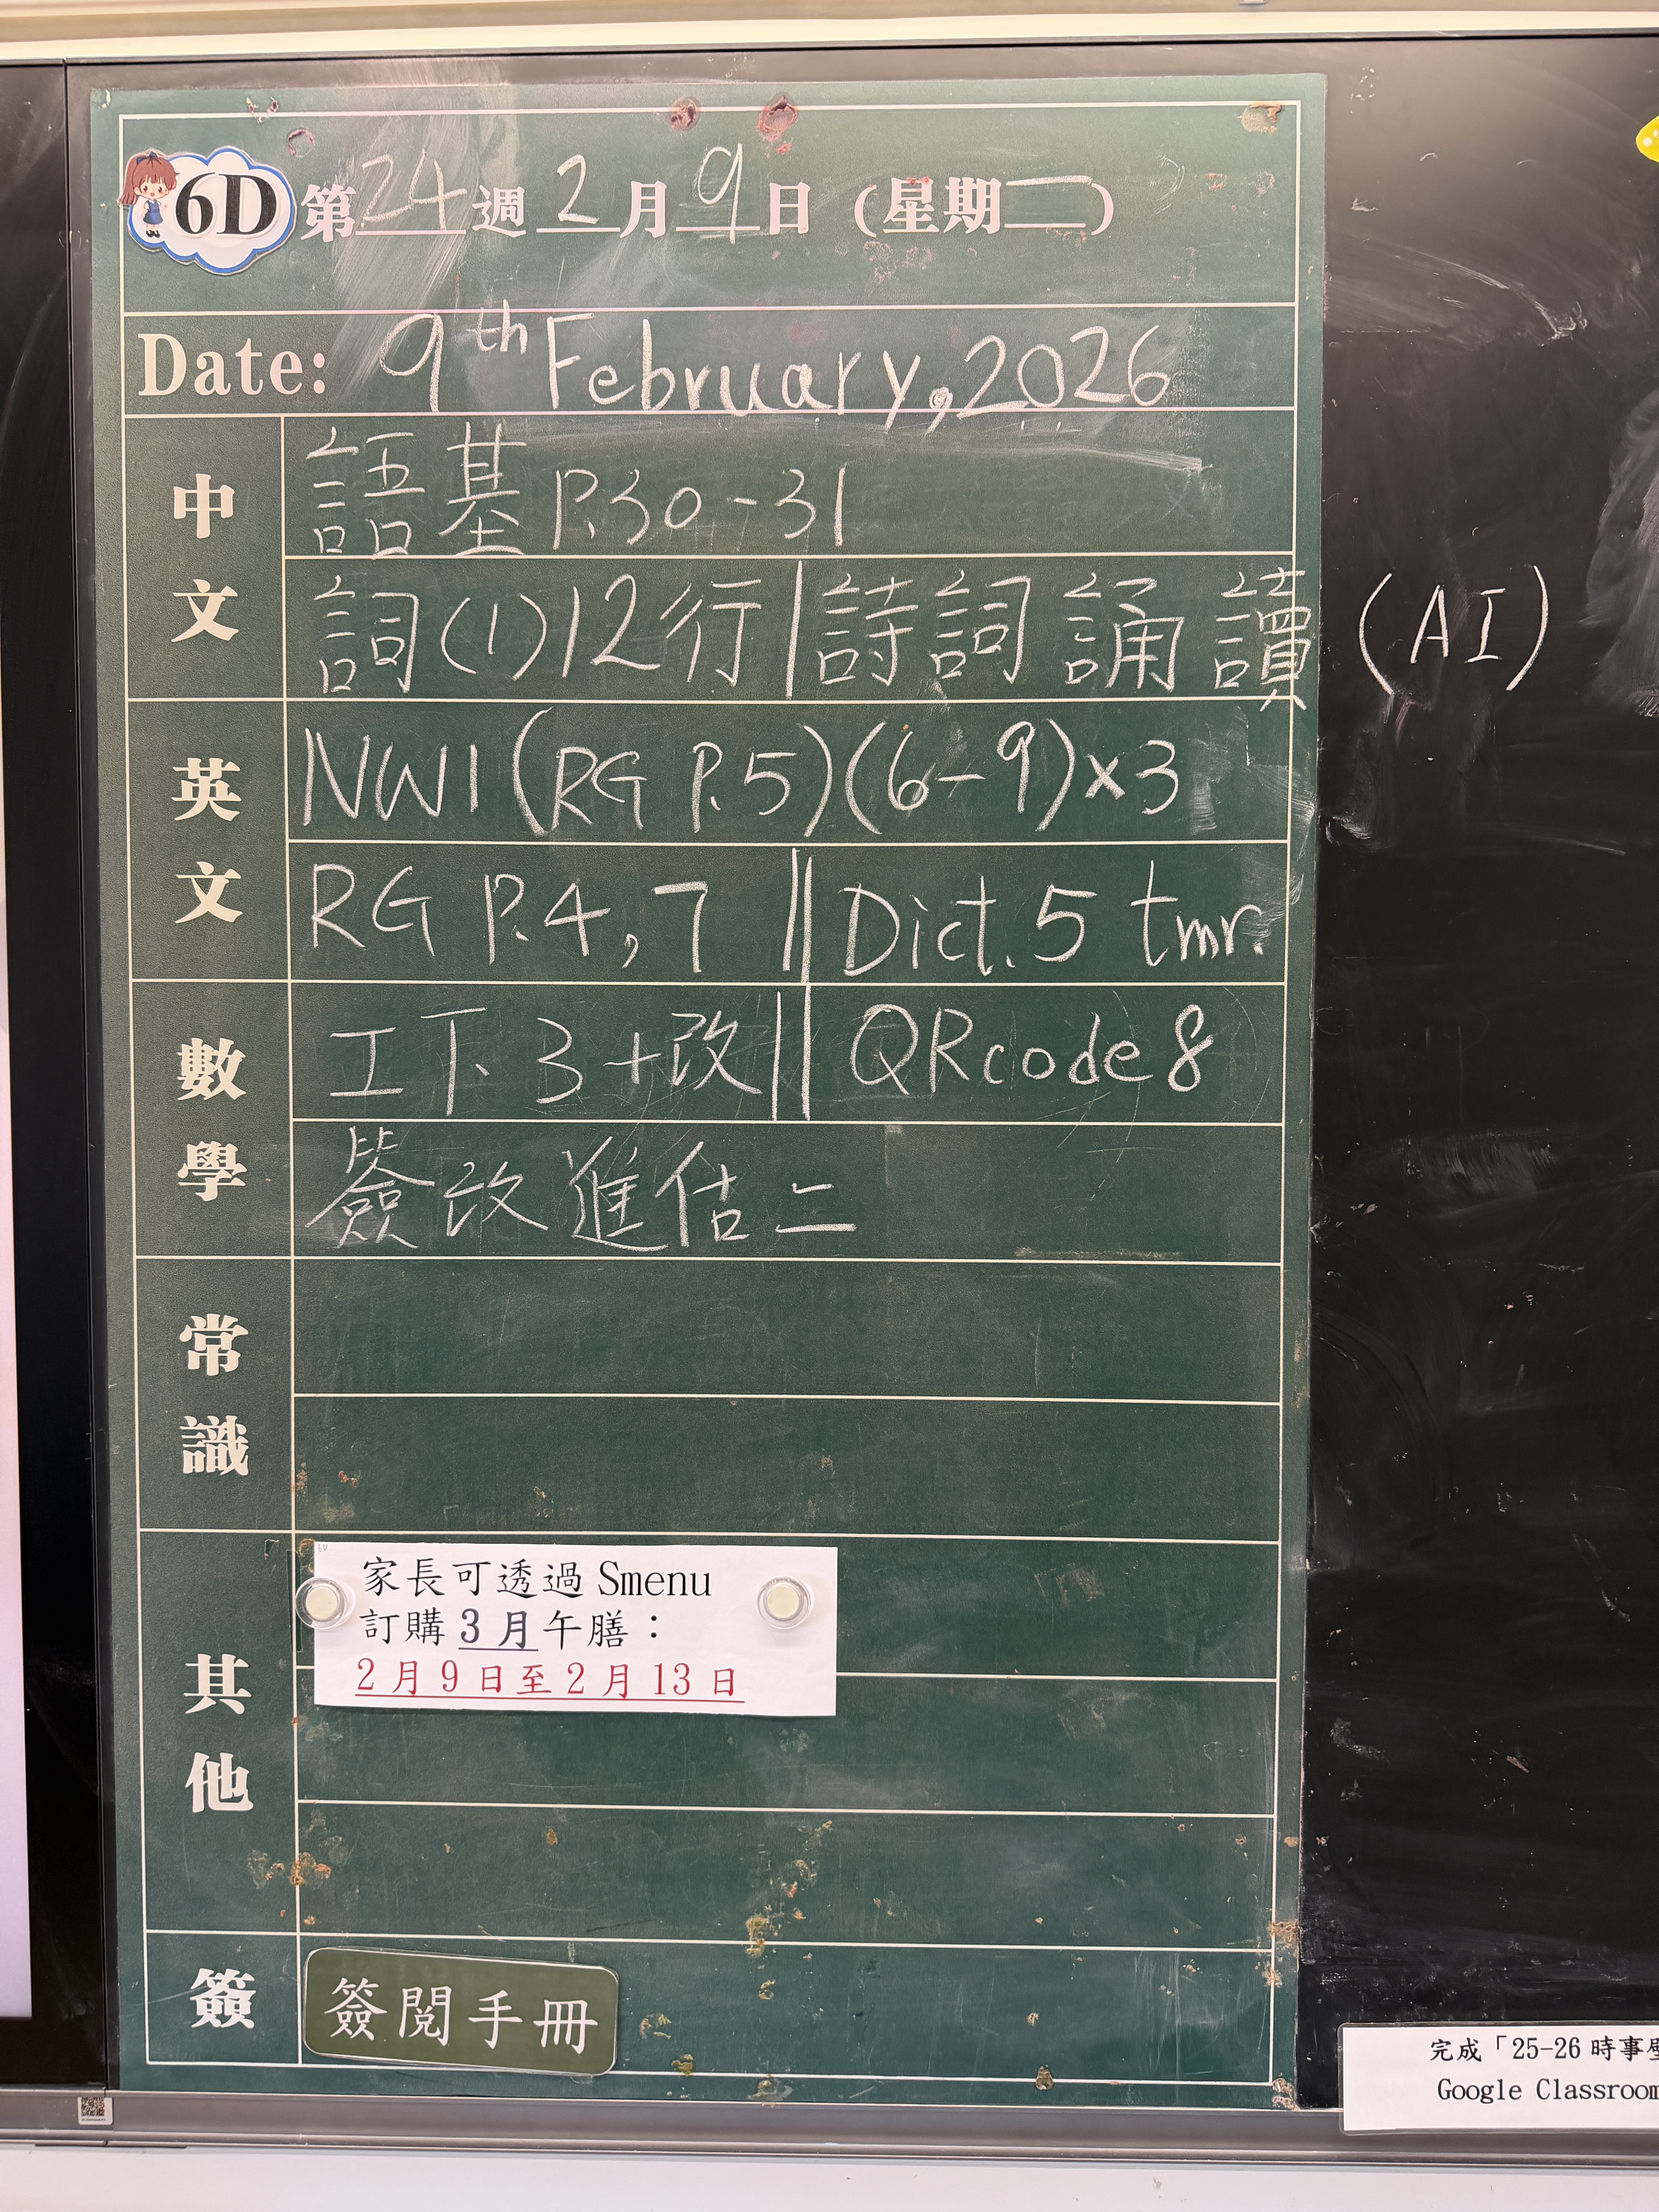 6D 第24週2月9日(星期一)
Date: 9th February, 2026
中文
語基P.30-31
詞(1)12行|詩詞誦讀(AI)
英文
NW1(RG P.5)(6-9)×3
RG P.4,7 || Dict.5 tmr.
數學
工下3+改||QRcode8
簽改進估二
常識
其他
家長可透過Smenu
訂購3月午膳：
2月9日至2月13日
簽
簽閱手冊
完成「25-26時事
Google Classroom